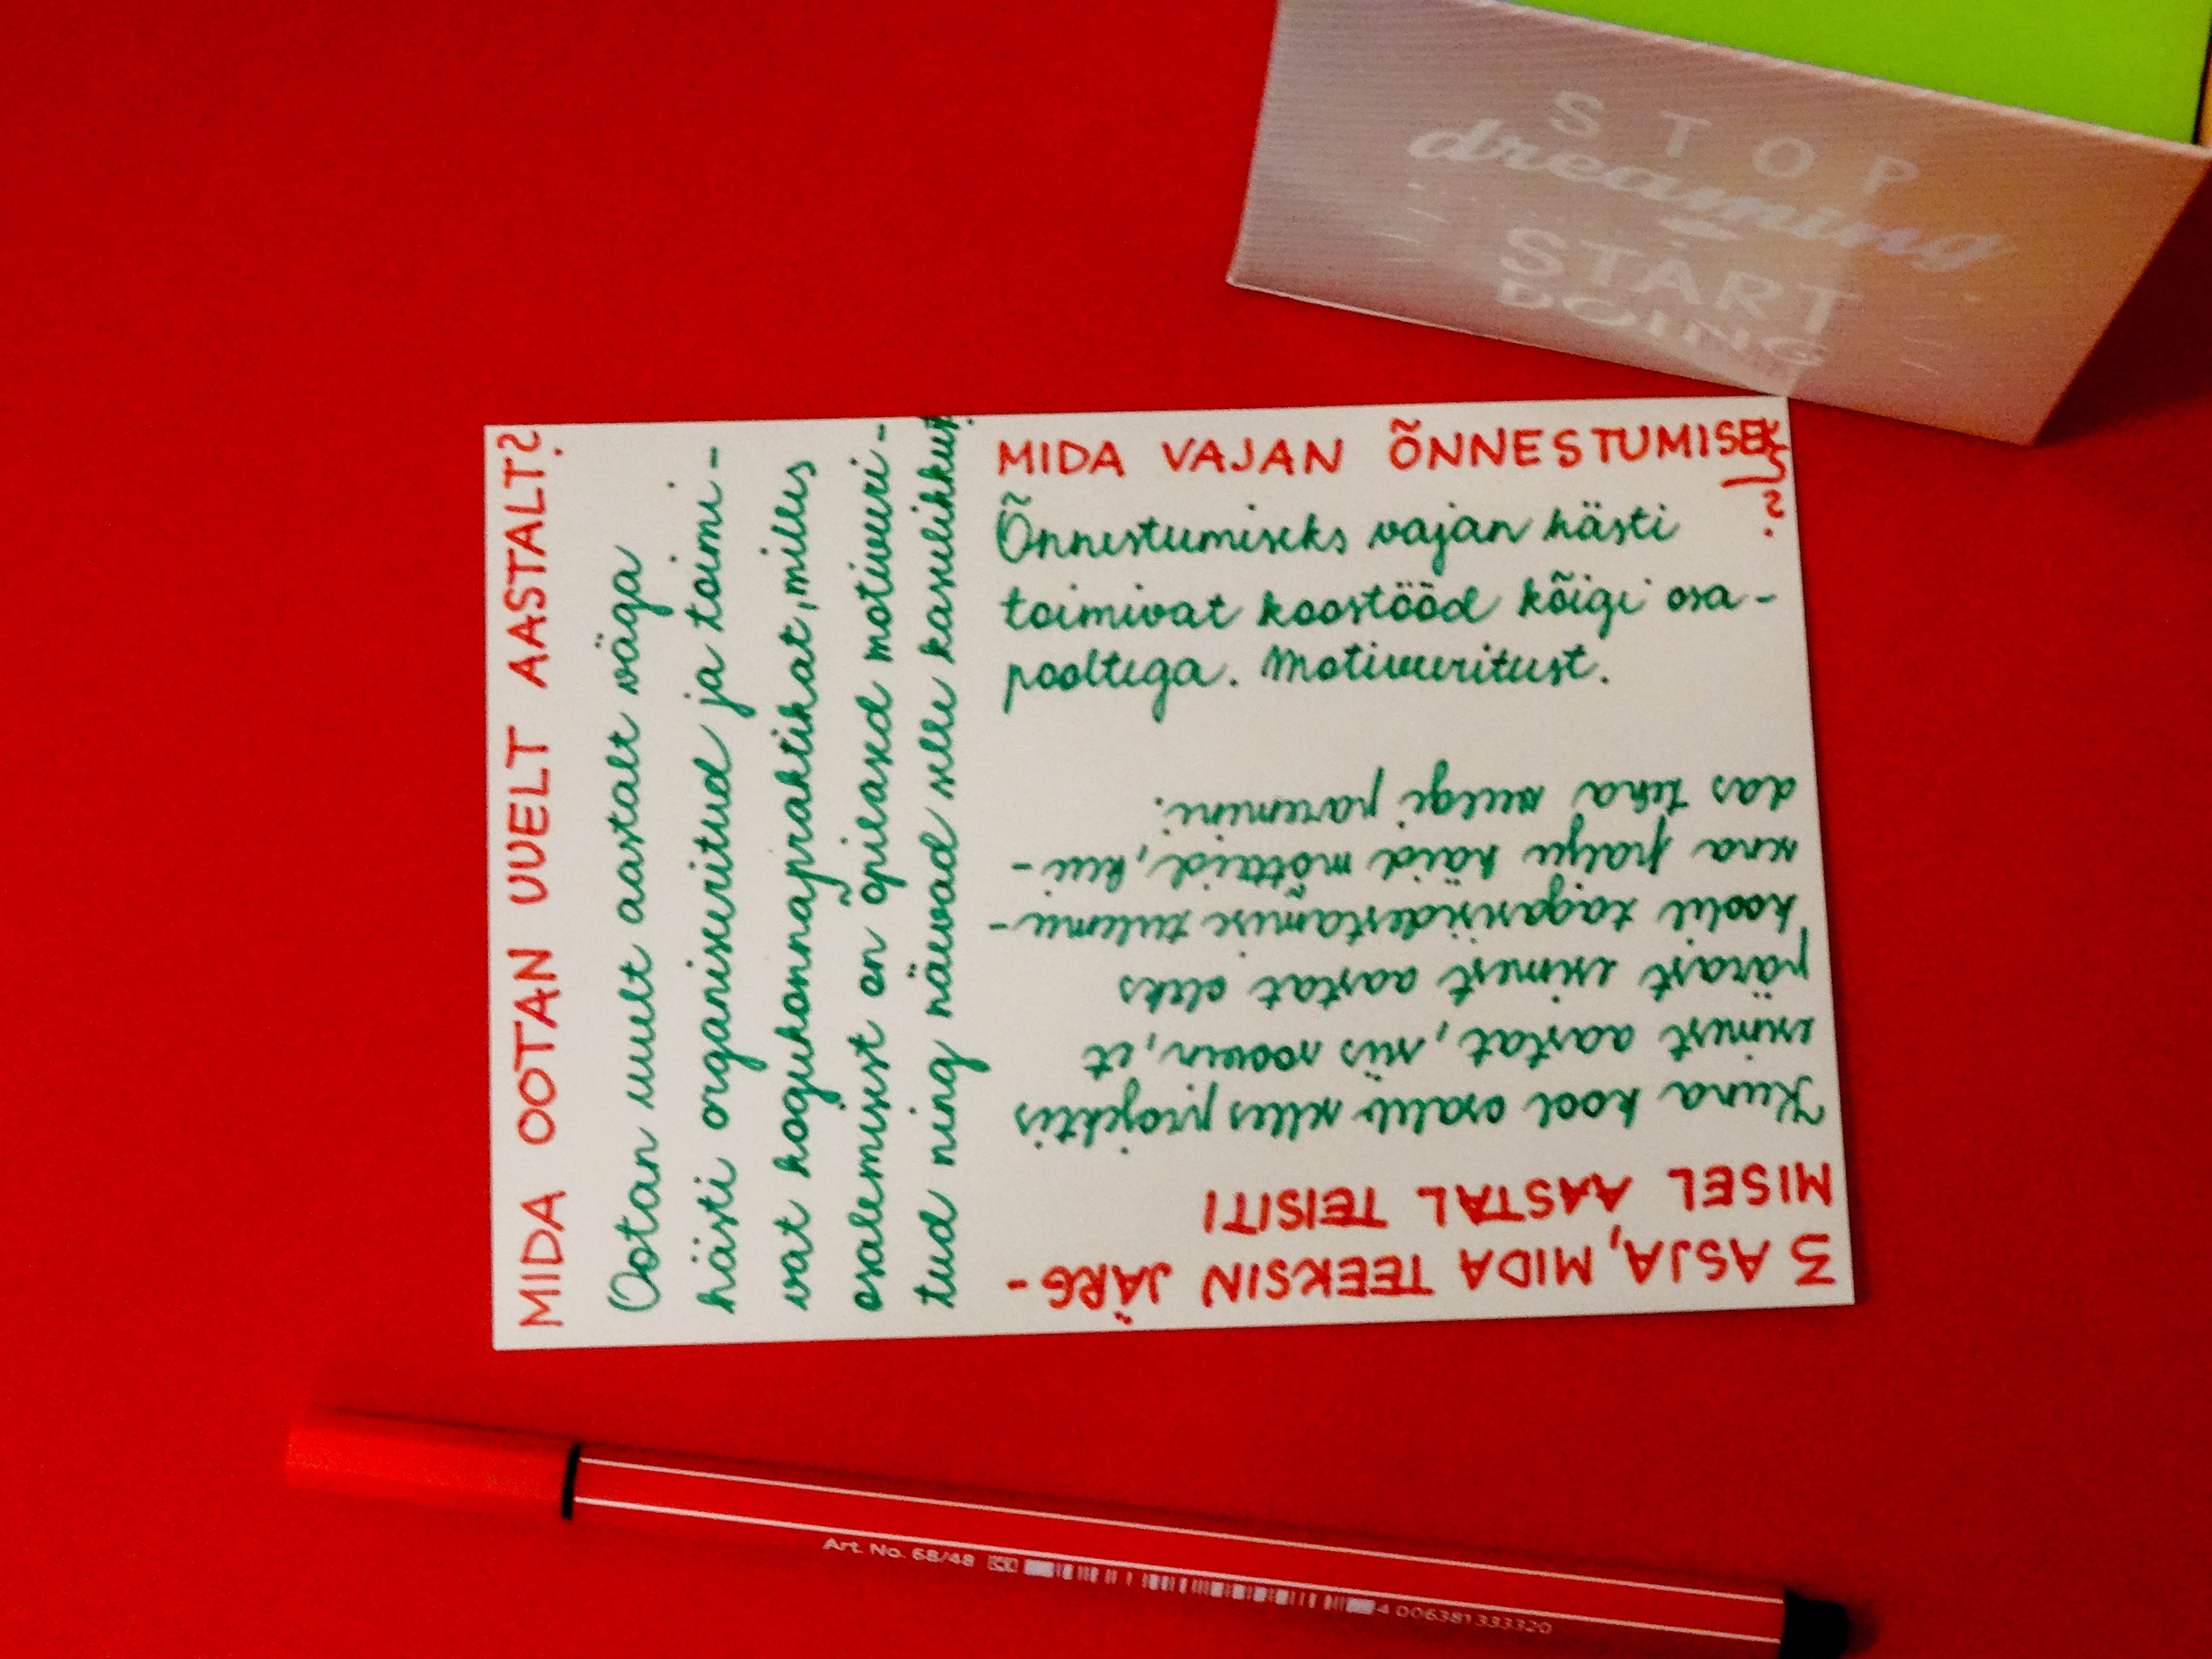 STOP
dreaming
START
DOING
MIDA OOTAN UUELT AASTALT?
Ootan uuelt aastalt väga
hästi organiseeritud ja toimi-
vat kogukonnapraktikat, milles
osalemisest on õpilased motiveeri-
tud ning näevad selle kasulikkust.
MIDA VAJAN ÕNNESTUMISEKS?
Õnnestumiseks vajan hästi
toimivat koostööd kõigi osa-
pooltega. Motiveeritust.
3 ASJA, MIDA TEEKSIN JÄRG-
MISEL AASTAL TEISITI
Kuna kool osaleb selles projektis
esimest aastat, siis soovin, et
pärast esimest aastat oleks
koolil tagasisidestamise tulemu-
sena palju häid mõtteid, kui-
das teha veelgi paremini.
Art. No. 68/48 4 006381333320